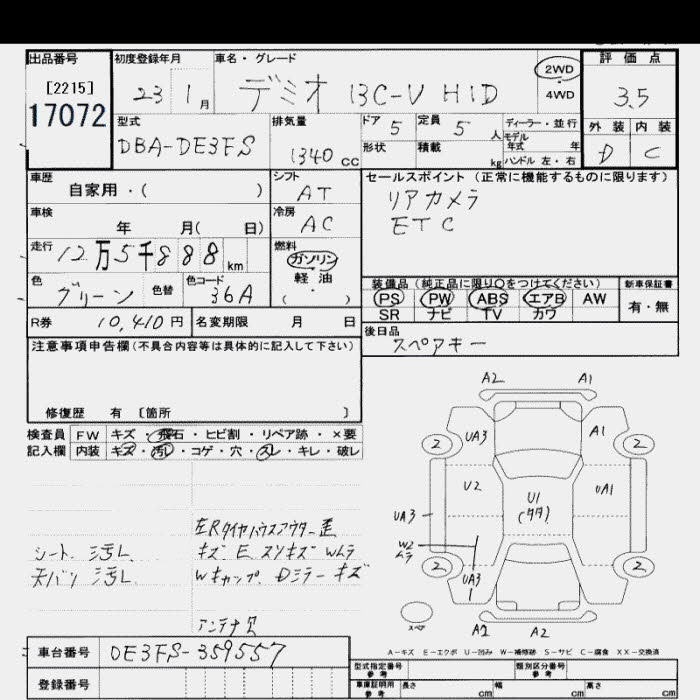 出品番号 [2215] 17072
初度登録年月 23 1月
車名・グレード デミオ 13C-V HID
2WD
4WD
評価点 3.5
型式 DBA-DE3FS
排気量 1340 cc
ドア 5 定員 5 人
形状 積載 kg
ディーラー・並行
モデル
年式 年
ハンドル 左・右
外装 内装
D C
車歴 自家用・( )
シフト AT
セールスポイント (正常に機能するものに限ります)
リアカメラ
ETC
車検 年 月( 日)
冷房 AC
走行 12万5千888 km
燃料 ガソリン
軽油
・( )
色 グリーン 色替 色コード 36A
装備品 (純正品に限り○をつけてください) 新車保証書
PS PW ABS エアB AW 有・無
SR ナビ TV カワ
R券 10,410円 名変期限 月 日
後日品 スペアキー
注意事項申告欄(不具合内容等は具体的に記入して下さい)
修復歴 有 [箇所 ]
検査員 FW キズ・飛石・ヒビ割・リペア跡・×要
記入欄 内装 キズ・汚レ・コゲ・穴・スレ・キレ・破レ
シート シ汚レ
天バリ シ汚レ
左Rタイヤハウスアウター歪
キズ E スリキズ Wムラ
Wキャップ、Dミラーキズ
A2 A1
2 UA3 A1 2
U2 U1 UA1
UA3
W2
ムラ
2 UA3 2
1
スペア A2 A2
車台番号 DE3FS-359557
登録番号
A-キズ E-エクボ U-凹み W-補修跡 S-サビ C-腐食 XX-交換済
型式指定番号 参考 類別区分番号 参考
車庫証明用 参考 長さ cm 幅 cm 高さ cm